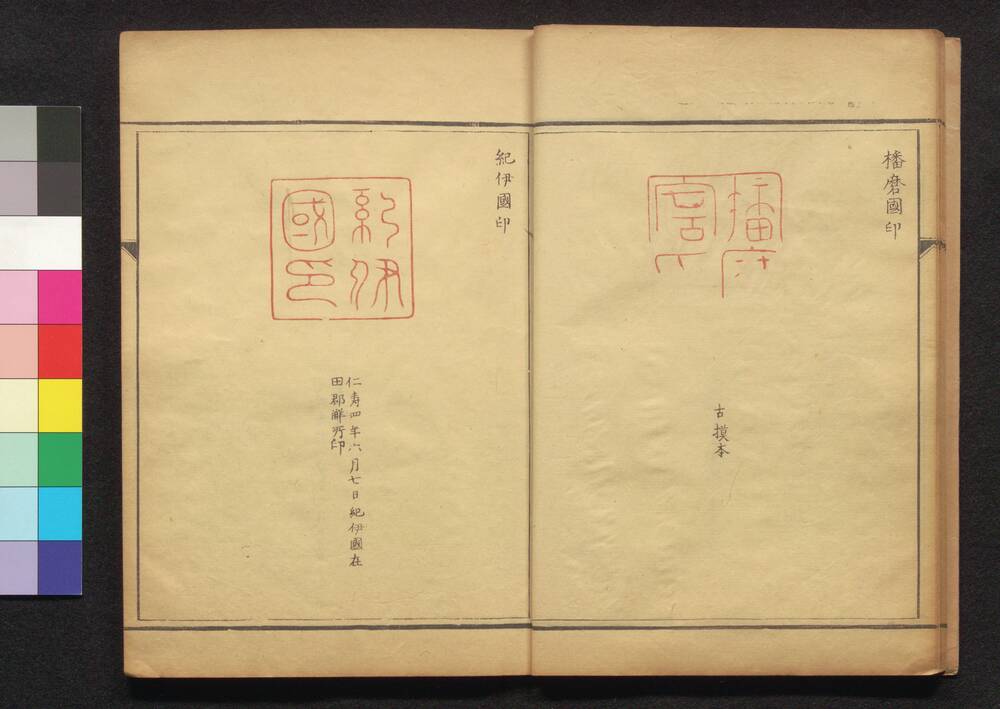 播磨國印
古摸本
紀伊國印
紀伊國印
仁壽四年六月七日紀伊國在
田郡解所印